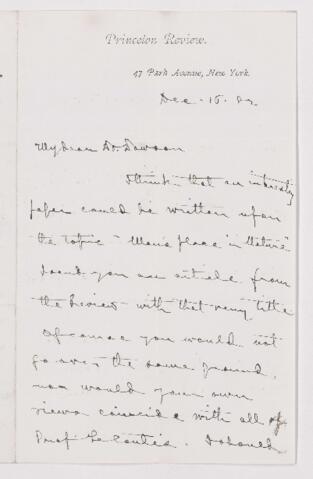 Princeton Review.
47 Park Avenue, New York.
Dec. 15.
My dear Dr. Dawson
I think that an interesting
paper could be written upon
the topic "Man's place in Nature"
I send you an article from
the Review with that very title
Of course you would not
go over the same ground,
nor would your own
views coincide with all of
Prof Le Conte's. I should